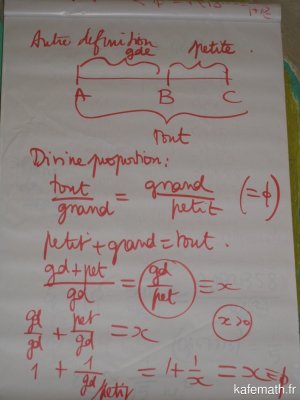 Autre definition
gde petite
A B C
Tout
Divine proportion:
tout/grand = grand/petit (=ϕ)
petit + grand = tout.
gd+pet/gd = gd/pet = x
gd/gd + pet/gd = x x>0
1 + 1/gd/petit = 1 + 1/x = x = ϕ
kafemath.fr